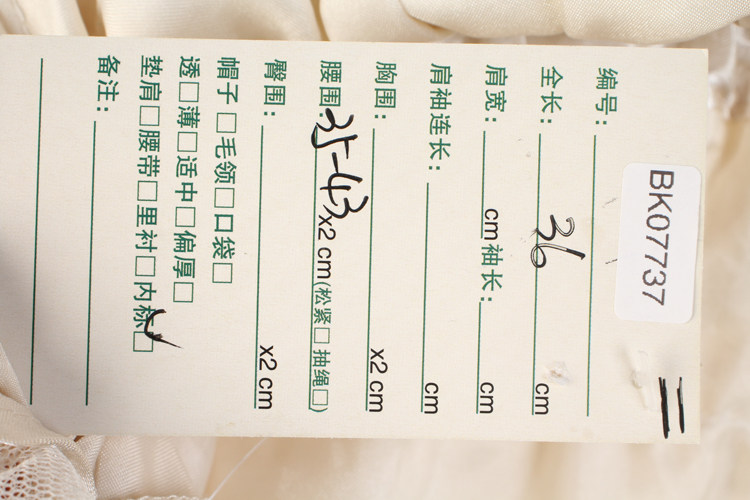 BK07737
编号:
全长: 36 cm
肩宽: cm 袖长: cm
肩袖连长: cm
胸围: x2 cm
腰围: 35-43 x2 cm (松紧□ 抽绳□)
臀围: x2 cm
帽子□ 毛领□ 口袋□
透□ 薄□ 适中□ 偏厚□
垫肩□ 腰带□ 里衬□ 内标□
备注: